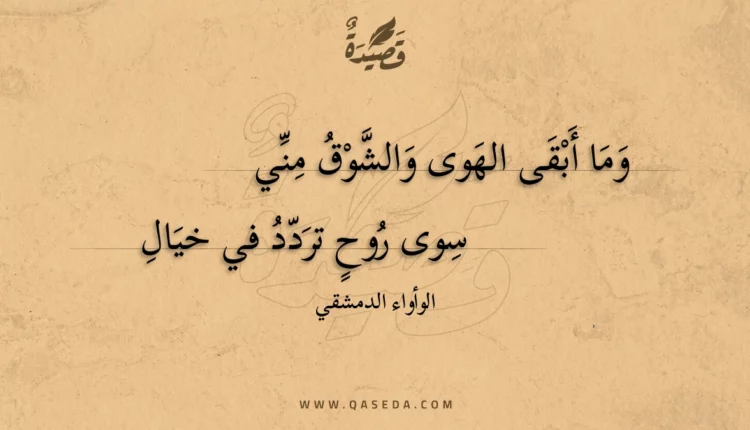 قَصِيدَةٌ
وَمَا أَبْقَى الهَوى وَالشَّوْقُ مِنِّي
سِوى رُوحٍ ترَدّدُ في خيَالِ
الوأواء الدمشقي
WWW.QASEDA.COM